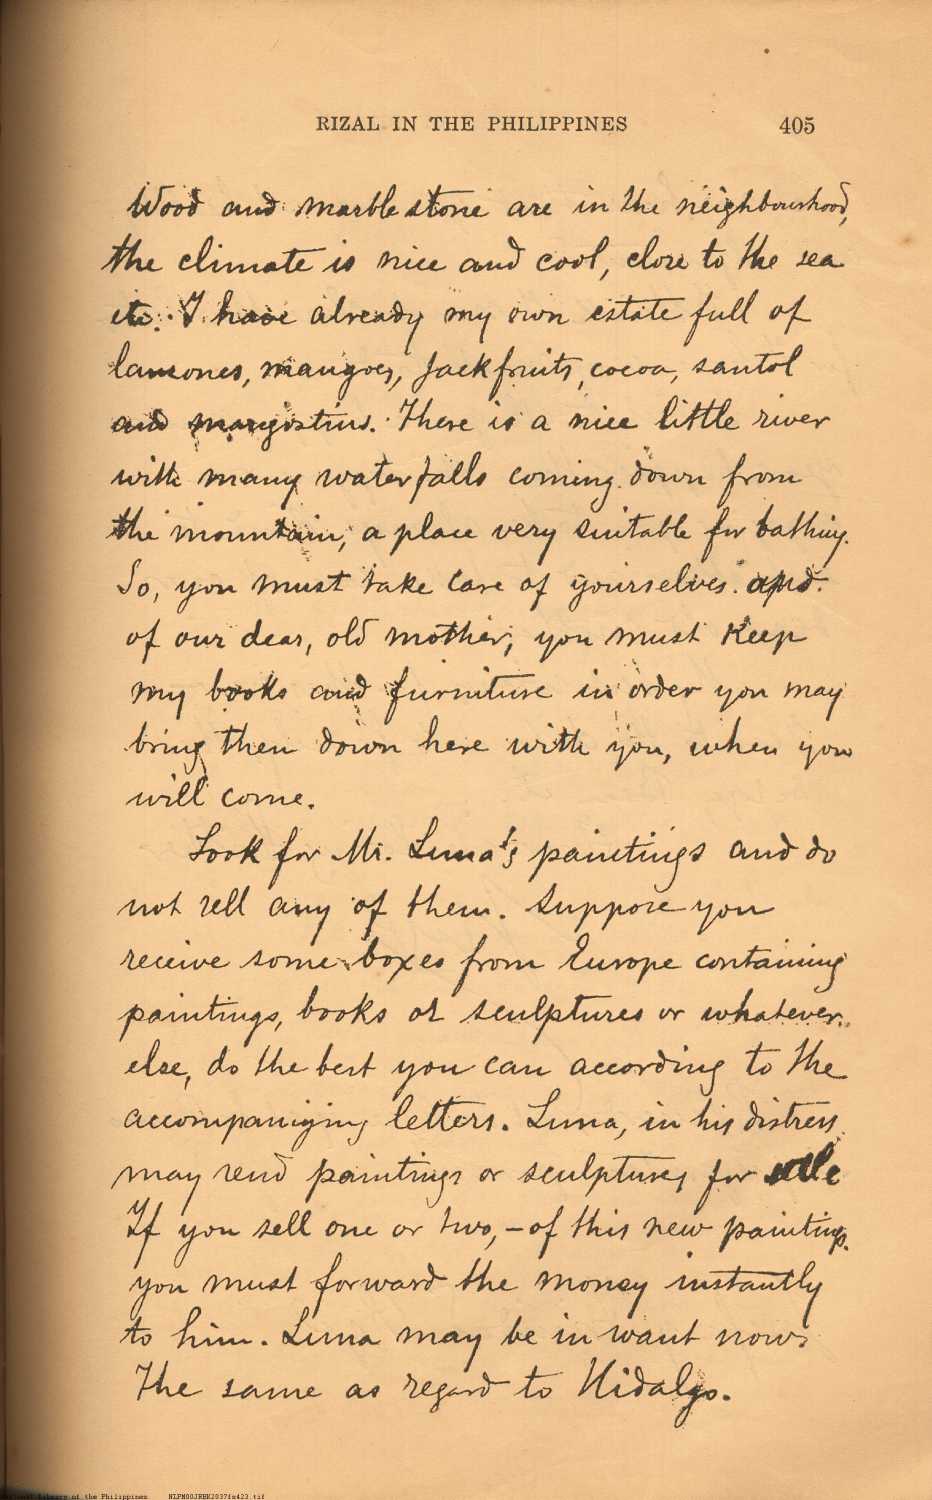 RIZAL IN THE PHILIPPINES 405
Wood and marble stone are in the neighbourhood,
the climate is nice and cool, close to the sea
etc. I have already my own estate full of
lansones, mangoes, jackfruits, cocoa, santol
and mangostins. There is a nice little river
with many waterfalls coming down from
the mountain, a place very suitable for bathing.
So, you must take care of yourselves and
of our dear, old mother; you must keep
my books and furniture in order you may
bring then down here with you, when you
will come.
Look for Mr. Luna's paintings and do
not sell any of them. Suppose you
receive some boxes from Europe containing
paintings, books or sculptures or whatever
else, do the best you can according to the
accompanying letters. Luna, in his distress
may send paintings or sculptures for sale
If you sell one or two, – of this new paintings.
you must forward the money instantly
to him. Luna may be in want now.
The same as regard to Hidalgo.
of the Philippines NLPM00JRBK2037fs423.tif